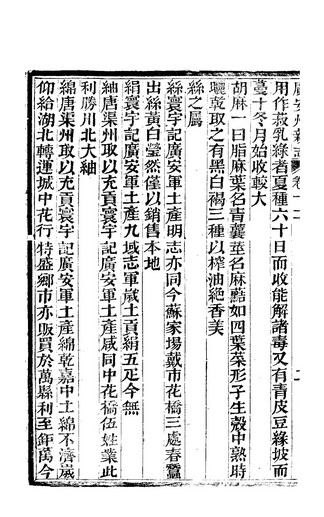 廣安州新志 卷十二
用作菽乳綠者夏種六十日而收能解諸毒又有青皮豆緣坡而
蔓十冬月始收較大
胡麻一曰脂麻葉名青蘘莖名麻䕸如四葉菜形子生殼中熟時
曬乾取之有黑白褐三種以榨油絶香美
絲之屬
絲寰宇記廣安軍土產明志亦同今蘇家場戴市花橋三處春蠶
出絲黃白瑩然僅以銷售本地
絹寰宇記廣安軍土產九域志軍歲土貢絹五疋今無
紬唐渠州取以充貢寰宇記廣安軍土產咸同中花橋伍姓業此
利勝川北大紬
綿唐渠州取以充貢寰宇記廣安軍土產綿乾嘉中土綿不濟歲
仰給湖北轉運城中花行特盛鄉市亦販買於萬縣利至鉅萬今